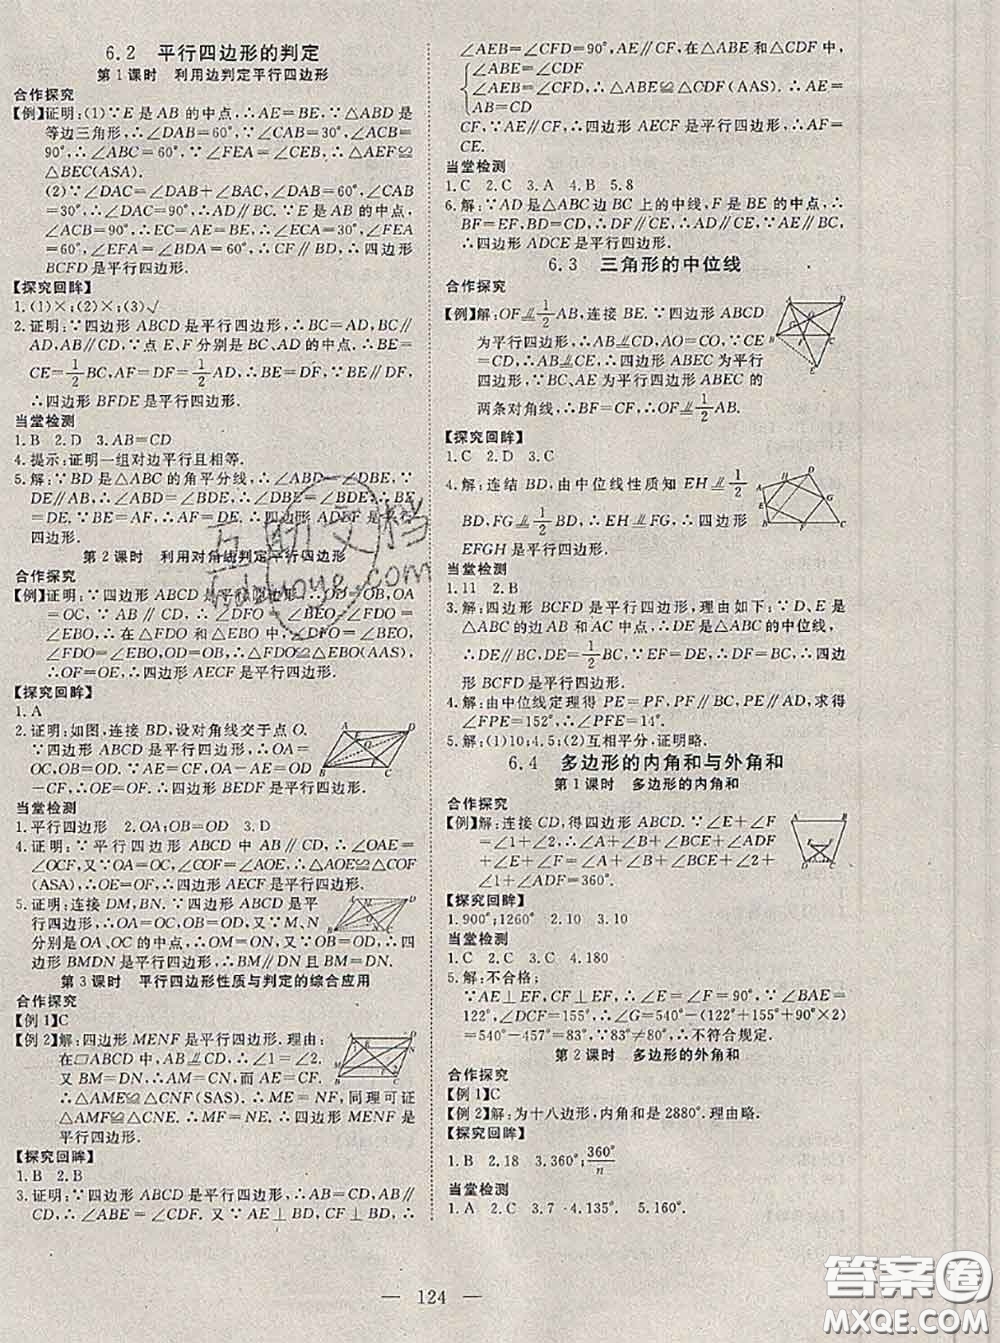 6.2 平行四边形的判定
第1课时 利用边判定平行四边形
合作探究
【例】证明:(1)∵E是AB的中点,∴AE=BE.∵△ABD是
等边三角形,∴∠DAB=60°.∵∠CAB=30°,∠ACB=
90°,∴∠ABC=60°.∵∠FEA=∠CEB,∴△AEF≌
△BEC(ASA).
(2)∵∠DAC=∠DAB+∠BAC,∠DAB=60°,∠CAB
=30°,∴∠DAC=90°,∴AD∥BC.∵E是AB的中点,
∠ACB=90°,∴EC=AE=BE,∴∠ECA=30°,∠FEA
=60°,∴∠EFA=∠BDA=60°,∴CF∥BD,∴四边形
BCFD是平行四边形.
【探究回眸】
1.(1)×;(2)×;(3)√
2.证明:∵四边形ABCD是平行四边形,∴BC=AD,BC∥
AD,AB∥CD,∵点E、F分别是BC、AD的中点,∴BE=
CE=1/2BC,AF=DF=1/2AD,∴BE=DF,BE∥DF,∴四
边形BFDE是平行四边形.
当堂检测
1.B 2.D 3.AB=CD
4.提示:证明一组对边平行且相等.
5.解:∵BD是△ABC的角平分线,∴∠ABD=∠DBE,∵
DE∥AB,∴∠ABD=∠BDE,∴∠DBE=∠BDE,∴BE=
DE.∵BE=AF,∴AF=DE,∴四边形ADEF是平行
四边形.
第2课时 利用对角线判定平行四边形
合作探究
【例】证明:∵四边形ABCD是平行四边形,∴OD=OB,OA
=OC.∵AB∥CD,∴∠DFO=∠BEO,∠FDO=
∠EBO,∴在△FDO和△EBO中,∠DFO=∠BEO,
∠FDO=∠EBO,OD=OB,∴△FDO≌△EBO(AAS),
∴OF=OE,∴四边形AECF是平行四边形.
【探究回眸】
1.A
2.证明:如图,连接BD,设对角线交于点O.
∵四边形ABCD是平行四边形,∴OA=
OC,OB=OD.∵AE=CF,OA-AE=OC
-CF,∴OE=OF.∴四边形BEDF是平行四边形.
当堂检测
1.平行四边形 2.OA;OB=OD 3.D
4.证明:∵平行四边形ABCD中AB∥CD,∴∠OAE=
∠OCF,又∵OA=OC,∠COF=∠AOE,∴△AOE≌△COF
(ASA),∴OE=OF,∴四边形AECF是平行四边形.
5.证明:连接DM,BN.∵四边形ABCD是平
行四边形,∴OA=OC,OB=OD,又∵M、N
分别是OA、OC的中点,∴OM=ON,∴四
BMDN是平行四边形,∴BM∥DN且BM=DN.
第3课时 平行四边形性质与判定的综合应用
合作探究
【例1】C
【例2】解:四边形MENF是平行四边形.理由:
在▱ABCD中,AB⫽CD,∴∠1=∠2.
又BM=DN,∴AM=CN.又∵AF=CE,
∴△AMF≌△CNF(SAS).∴ME=NE,同理可证
△AMF≌△CNE.∴MF=NE.∴四边形MENF是
平行四边形.
【探究回眸】
1.B 2.B
3.证明:∵四边形ABCD是平行四边形,∴AB=CD,AB∥
CD,∴∠ABE=∠CDF.又∵AE⊥BD,CF⊥BD,∴
∠AEB=∠CFD=90°,AE∥CF,在△ABE和△CDF中,
{∠ABE=∠CDF
∠AEB=∠CFD=90°,∴△ABE≌△CDF(AAS).∴AE=
AB=CD
CF.∵AE∥CF,∴四边形AECF是平行四边形,∴AF=
CE.
当堂检测
1.C 2.C 3.A 4.B 5.8
6.解:∵AD是△ABC边BC上的中线,F是BE的中点,∴
BF=EF,BD=CD,∴DF∥CE,∴∠DFB=∠CEF,
∴四边形ADCE是平行四边形.
6.3 三角形的中位线
合作探究
【例】解:OF⫽1/2AB,连接BE.∵四边形ABCD
为平行四边形,∴AB⫽CD,AO=CO,∵CE
=CD,∴AB⫽CE,∴四边形ABEC为平行
四边形,∵BC、AE为平行四边形ABEC的
两条对角线,∴BF=CF,∴OF⫽1/2AB.
【探究回眸】
1.C 2.D 3.C
4.解:连结BD,由中位线性质知EH⫽1/2
BD,FG⫽1/2BD,∴EH⫽FG,∴四边形
EFGH是平行四边形.
当堂检测
1.11 2.B
3.解:四边形BCFD是平行四边形,理由如下:∵D、E是
△ABC的边AB和AC中点,∴DE是△ABC的中位线,
∴DE∥BC,DE=1/2BC,∵DF∥BC,DF=BC,∴四边
形BCFD是平行四边形.
4.解:由中位线定理得PE=PF,PF∥BC,PE∥AD,求得
∠FPE=152°,∴∠PFE=14°.
5.解:(1)10;4.5;(2)互相平分,证明略.
6.4 多边形的内角和与外角和
第1课时 多边形的内角和
合作探究
【例】解:连接CD,得四边形ABCD.∵∠E+∠F
=∠1+∠2,∴∠A+∠B+∠BCE+∠E+
∠F+∠ADF=∠A+∠B+∠BCE+∠2+
∠1+∠ADF=360°.
【探究回眸】
1.900°;1260° 2.10 3.10
当堂检测
1.C 2.C 3.C 4.180
5.解:不合格;
∵AE⊥EF,CF⊥EF,∴∠E=∠F=90°,∵∠BAE=
122°,∠DCF=155°,∴∠G=540°-(122°+155°+90°×2)
=540°-457°=83°,∵83°≠80°,∴不符合规定.
第2课时 多边形的外角和
合作探究
【例1】C
【例2】解:为十八边形,内角和是2880°.理由略.
【探究回眸】
1.B 2.18 3.360°;360°/n
当堂检测
1.A 2.C 3.7 4.135° 5.160°
— 124 —
答案圈
MXQE.COM